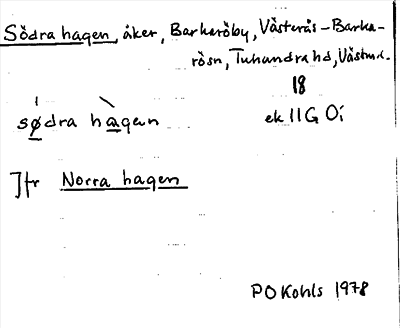 Södra hagen, åker, Barkaröby, Västerås-Barka-
rösn, Tuhundra hd, Västml.
18
södra hagan ek 11G 0i
Jfr Norra hagen
PO Kohls 1978